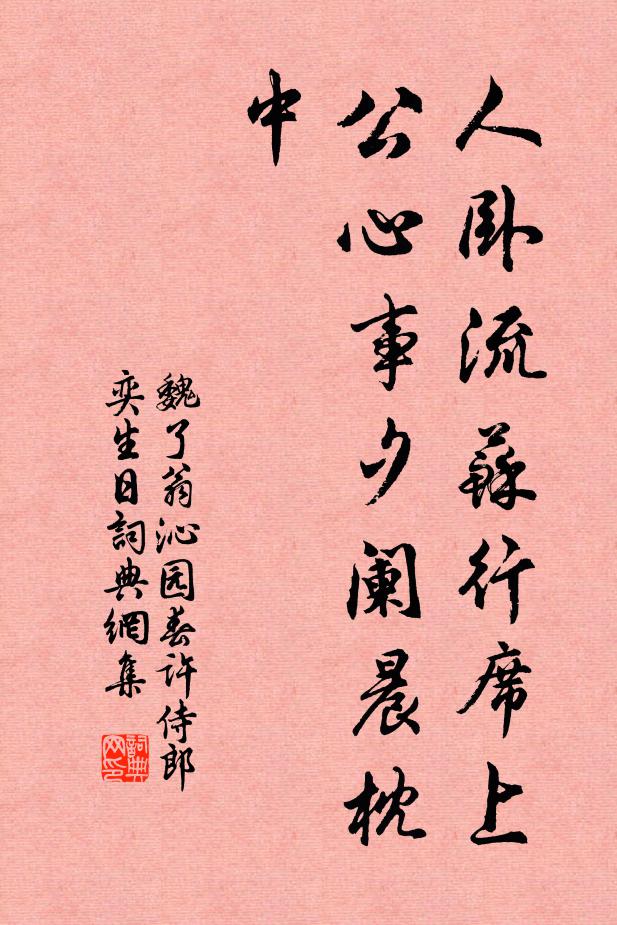 人卧流蘇行席上
公心事夕阑晨枕
中
魏了翁沁园春许侍郎
奕生日詞典網集
詞典网印